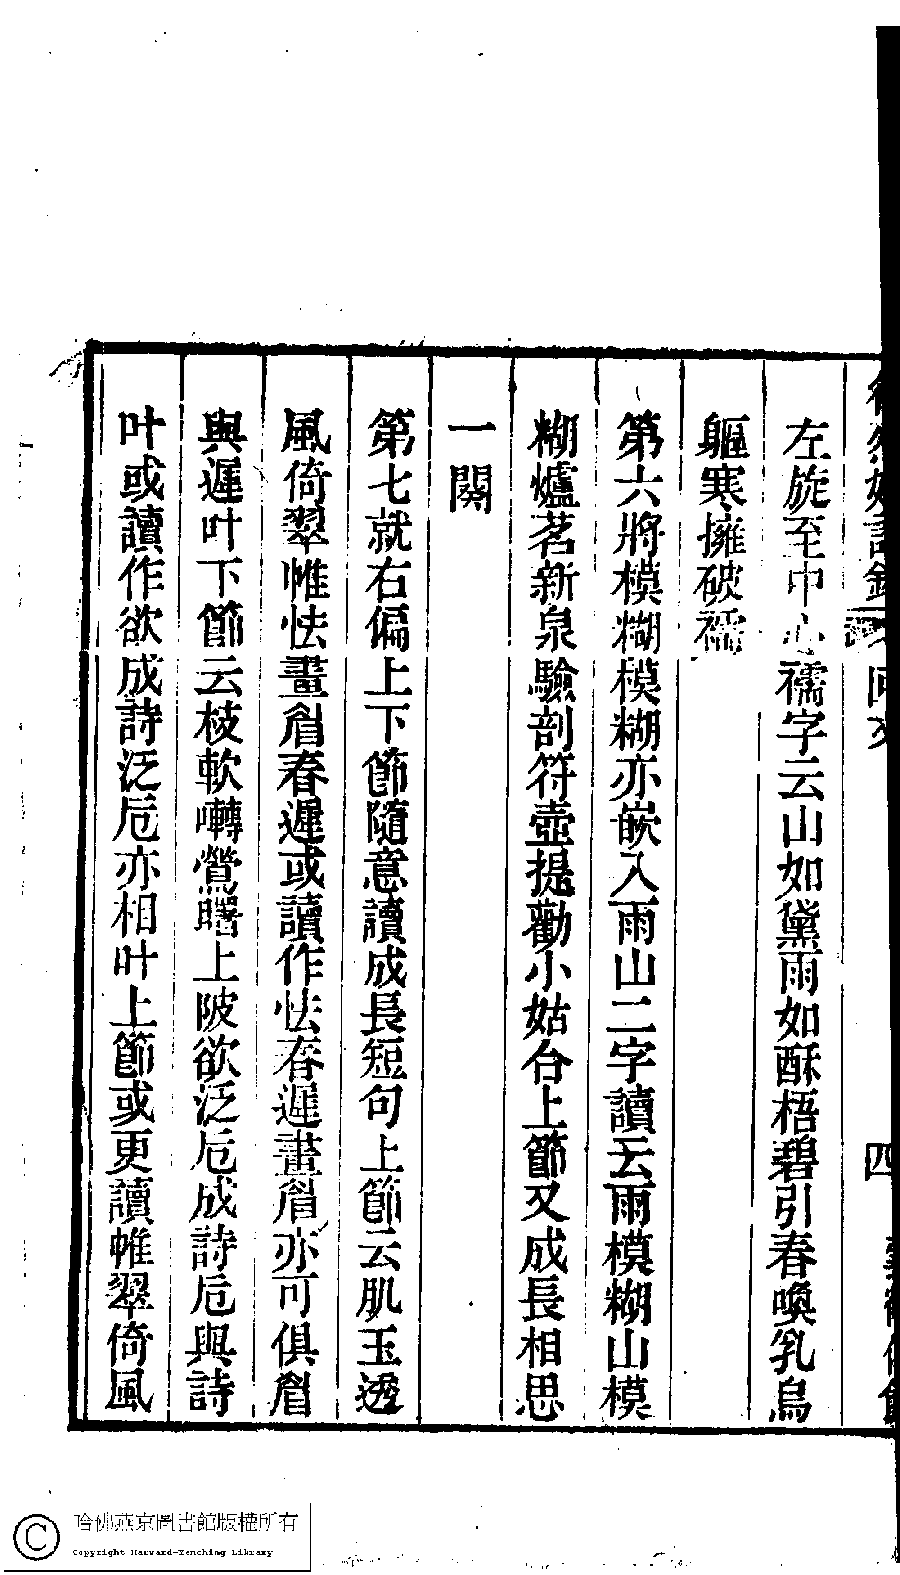 左旋至中心襦字云山如黛雨如酥梧碧引春喚乳烏
軀寒擁破襦
第六將模糊模糊亦嵌入雨山二字讀云雨模糊山模
糊爐茗新泉驗剖符壺提勸小姑合上節又成長相思
一闋
第七就右偏上下節隨意讀成長短句上節云肌玉透
風倚翠帷怯畫眉春遲或讀作怯春遲畫眉亦可俱眉
與遲叶下節云枝軟囀鶯曙上陂欲泛卮成詩卮與詩
叶或讀作欲成詩泛卮亦相叶上節或更讀帷翠倚風
四
哈佛燕京圖書館版權所有
Copyright Harvard-Yenching Library